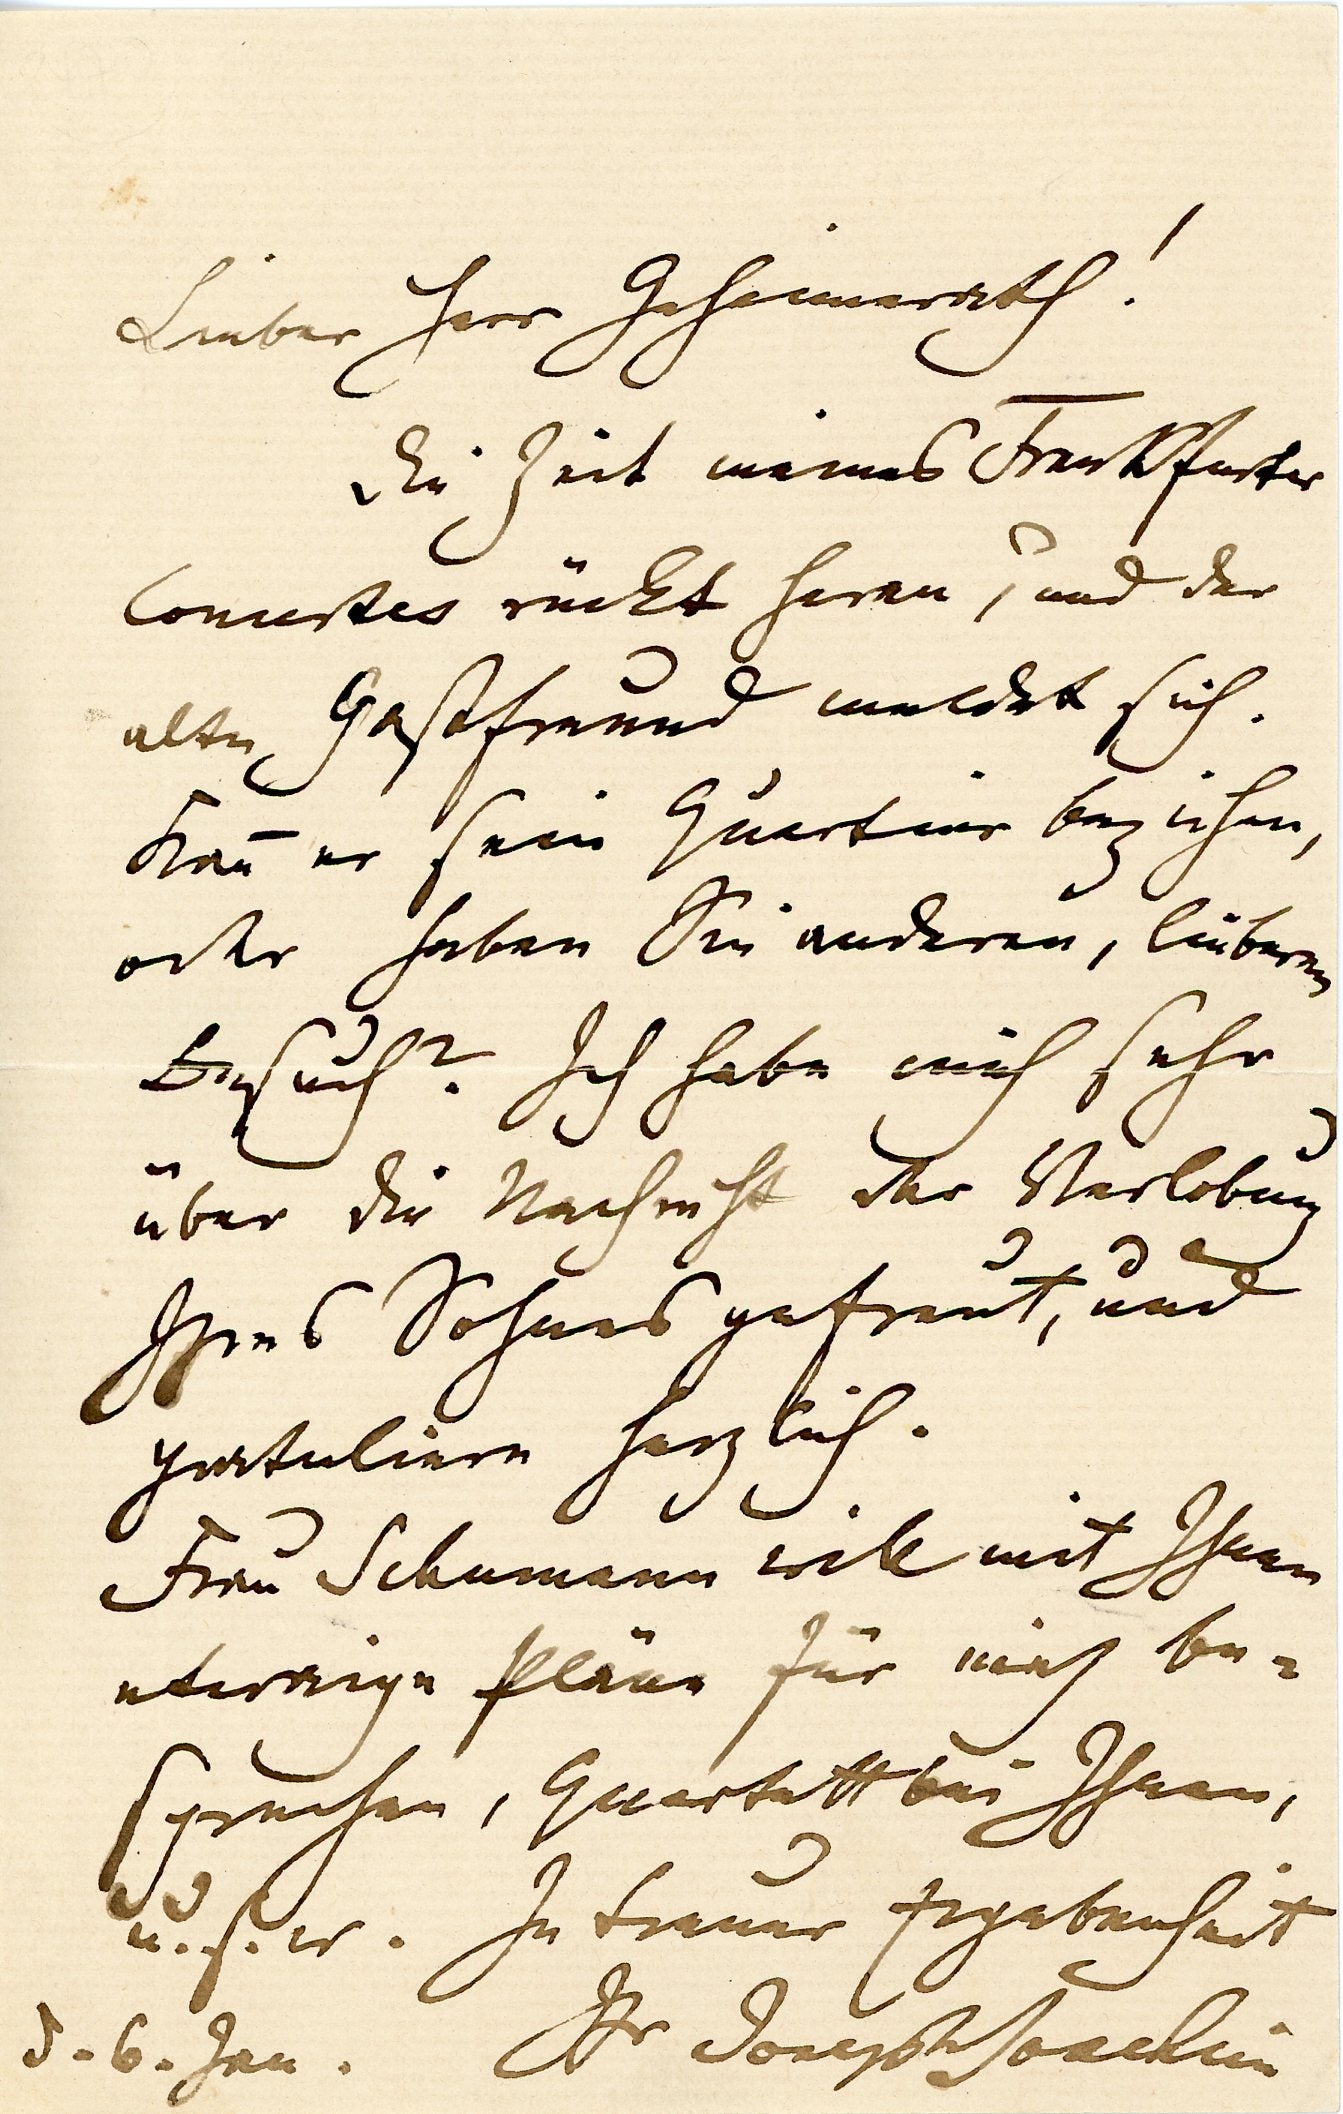 Lieber Herr Geheimerath!
die Zeit meines Frankfurter
Concertes rückt heran, und der
alte Gastfreund meldet sich.
Kan̄ er sein Quartier beziehen,
oder haben Sie anderen, lieberen
Besuch? Ich habe mich sehr
über die Nachricht der Verlobung
Ihres Sohnes gefreut, und
gratuliere herzlich.
Frau Schumann will mit Ihnen
etwaige Pläne für mich be-
sprechen, Quartett bei Ihnen,
u. s. w. In treuer Ergebenheit
d. 6. Jan. Ihr Joseph Joachim